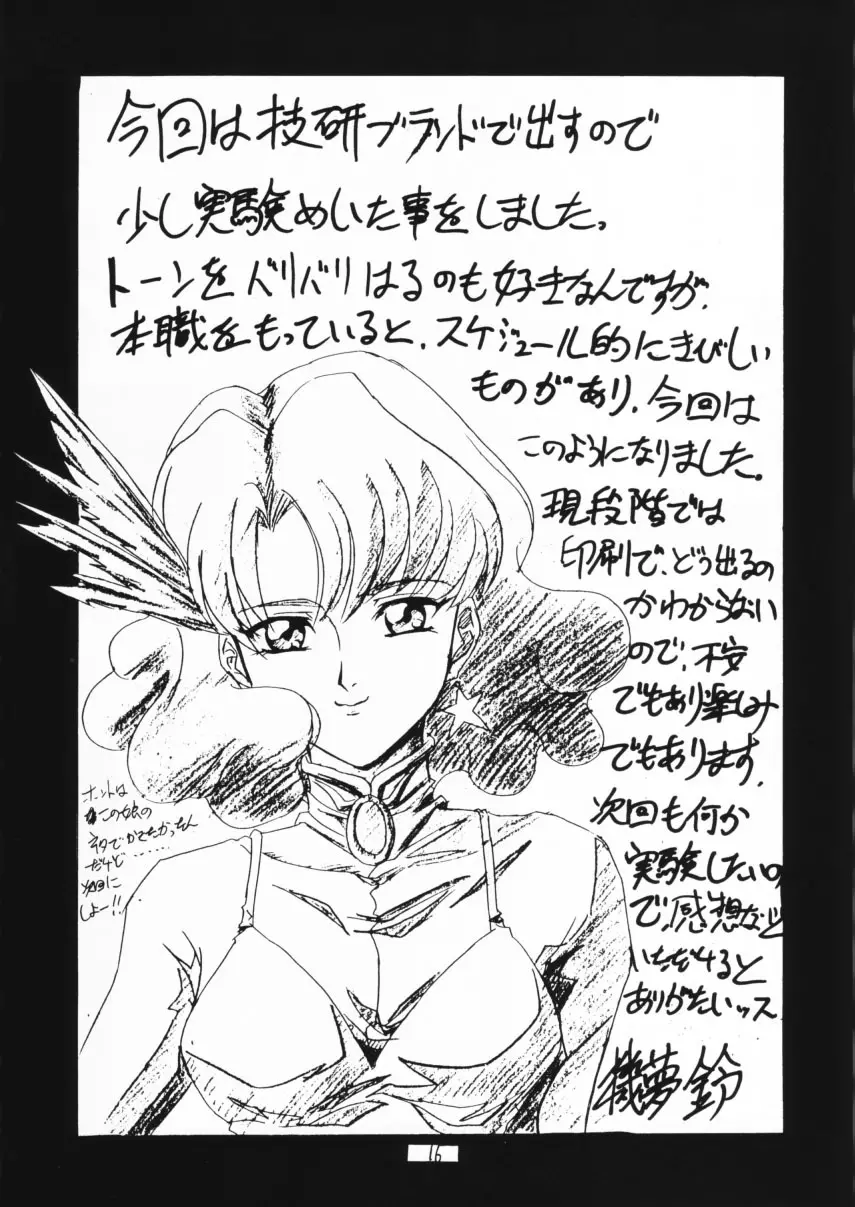 今回は技研ブランドで出すので
少し実験めいた事をしました。
トーンをバリバリはるのも好きなんですが、
本職をもっていると、スケジュール的にきびしい
ものがあり、今回は
このようになりました。
現段階では
印刷で、どう出るの
かわからない
ので、不安
でもあり楽しみ
でもあります。
次回も何か
実験したいの
で、感想など
いただけると
ありがたいッス
機夢鈴
ホントは
この娘の
ネタでかきたかったん
だけど……
次回に
しよー!!
16